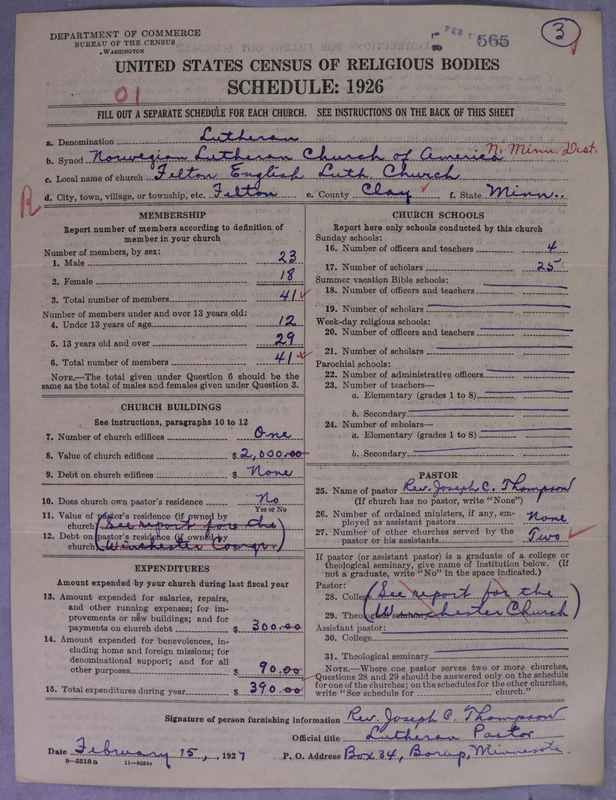 DEPARTMENT OF COMMERCE
BUREAU OF THE CENSUS
WASHINGTON
FEB 1
565
3
UNITED STATES CENSUS OF RELIGIOUS BODIES
SCHEDULE: 1926
01
FILL OUT A SEPARATE SCHEDULE FOR EACH CHURCH. SEE INSTRUCTIONS ON THE BACK OF THIS SHEET
a. Denomination Lutheran
b. Synod Norwegian Lutheran Church of America N. Minn. Dist.
c. Local name of church Felton English Luth. Church
R
d. City, town, village, or township, etc. Felton e. County Clay f. State Minn.
MEMBERSHIP
Report number of members according to definition of
member in your church
Number of members, by sex:
1. Male 23
2. Female 18
3. Total number of members 41
Number of members under and over 13 years old:
4. Under 13 years of age 12
5. 13 years old and over 29
6. Total number of members 41
NOTE.—The total given under Question 6 should be the
same as the total of males and females given under Question 3.
CHURCH BUILDINGS
See instructions, paragraphs 10 to 12
7. Number of church edifices One
8. Value of church edifices $ 2,000.00
9. Debt on church edifices $ None
10. Does church own pastor's residence No
Yes or No
11. Value of pastor's residence (if owned by
church) (See report for the
12. Debt on pastor's residence (if owned by
church) Winchester Congr.)
EXPENDITURES
Amount expended by your church during last fiscal year
13. Amount expended for salaries, repairs,
and other running expenses; for im-
provements or new buildings; and for
payments on church debt $ 300.00
14. Amount expended for benevolences, in-
cluding home and foreign missions; for
denominational support; and for all
other purposes $ 90.00
15. Total expenditures during year $ 390.00
CHURCH SCHOOLS
Report here only schools conducted by this church
Sunday schools:
16. Number of officers and teachers 4
17. Number of scholars 25
Summer vacation Bible schools:
18. Number of officers and teachers
19. Number of scholars
Week-day religious schools:
20. Number of officers and teachers
21. Number of scholars
Parochial schools:
22. Number of administrative officers
23. Number of teachers—
a. Elementary (grades 1 to 8)
b. Secondary
24. Number of scholars—
a. Elementary (grades 1 to 8)
b. Secondary
PASTOR
25. Name of pastor Rev. Joseph C. Thompson
(If church has no pastor, write "None")
26. Number of ordained ministers, if any, em-
ployed as assistant pastors None
27. Number of other churches served by the
pastor or his assistants Two
If pastor (or assistant pastor) is a graduate of a college or
theological seminary, give name of institution below. (If
not a graduate, write "No" in the space indicated.)
Pastor:
28. College (See report for the
29. Theological seminary Winchester Church)
Assistant pastor:
30. College
31. Theological seminary
NOTE.—Where one pastor serves two or more churches,
Questions 28 and 29 should be answered only on the schedule
for one of the churches; on the schedules for the other churches,
write "See schedule for church."
Signature of person furnishing information Rev. Joseph C. Thompson
Official title Lutheran Pastor
Date February 15, 1927 P. O. Address Box 34, Borup, Minnesota.
8—5518 a 11—9054